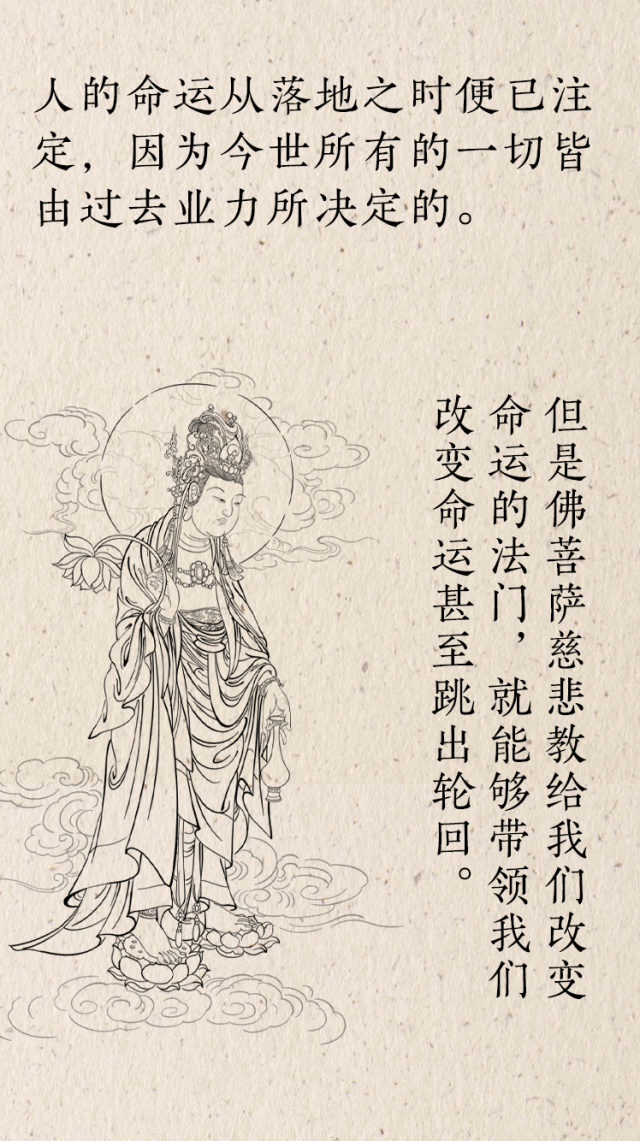 人的命运从落地之时便已注
定，因为今世所有的一切皆
由过去业力所决定的。
但是佛菩萨慈悲教给我们改变
命运的法门，就能够带领我们
改变命运甚至跳出轮回。